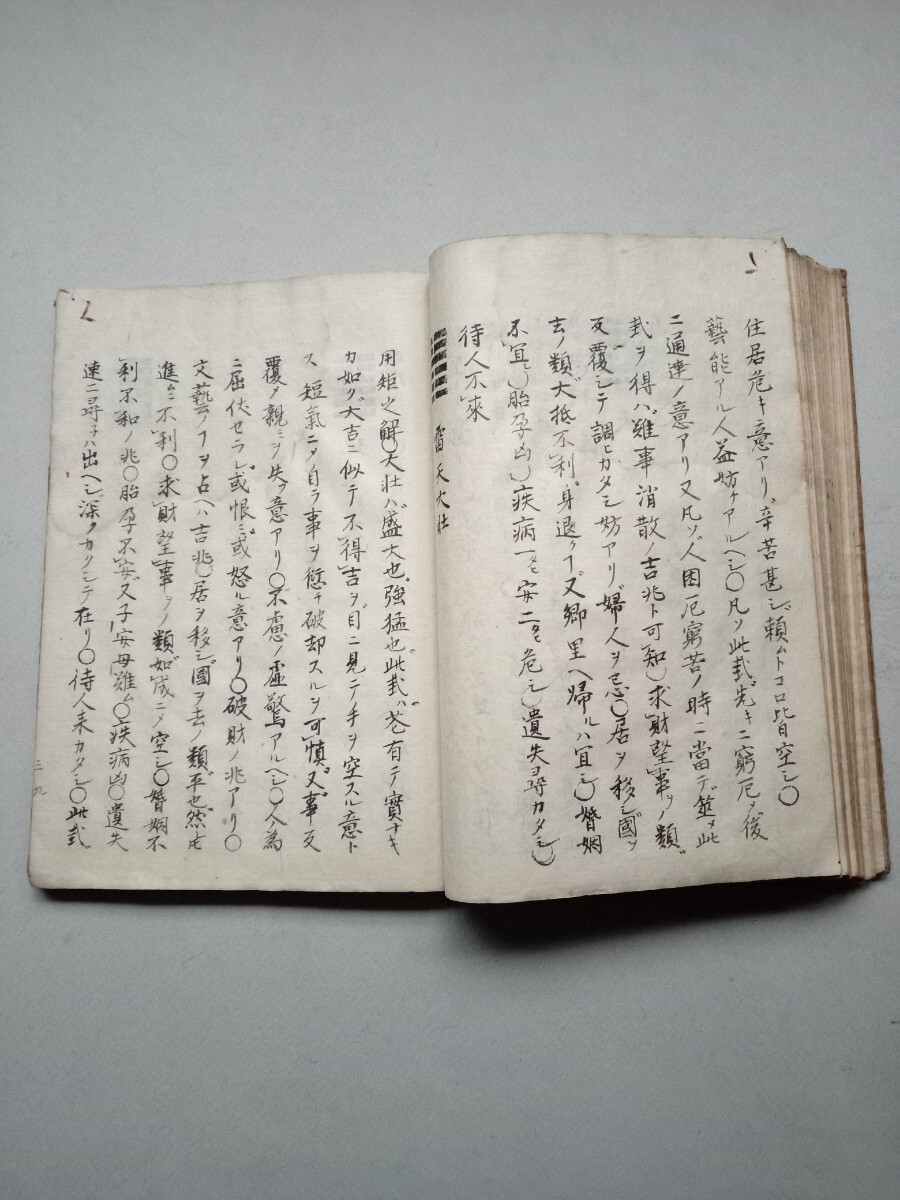 住居危キ意アリ辛苦甚シ頼ムトコロ皆空シ〇
藝能アル人益妨ケアルヘシ〇凡ソ此卦先キニ窮厄メ後
ニ通達ノ意アリ又凡ソ人困厄窮苦ノ時ニ當テ筮メ此
卦ヲ得ハ難事消散ノ吉兆ト可知〇求財望事ノ類
反覆シテ調ヒカタシ妨アリ婦人ヲ忌〇居ヲ移シ國ヲ
去ノ類大抵不利身退ク又郷里ヘ帰ルハ宜シ〇婚姻
不宜〇胎孕凶〇疾病 安 危シ〇遺失尋カタシ〇
待人不來
雷天大壮
用矩之解〇大壮ハ盛大也強猛也此卦ハ花有テ實ナキ
カ如ク大吉ニ似テ不得吉ヲ目ニ見テ手ヲ空スル意ト
ス短氣ニメ自ラ事ヲ 破却スルヲ可慎又事反
覆メ親ミヲ失フ意アリ〇不慮ノ虚驚アルヘシ〇人為
ニ屈伏セラレ或恨ミ或怒ル意アリ〇破財ノ兆アリ〇
文藝ノヲ占ヘハ吉兆〇居ヲ移シ國ヲ去ノ類平也然
進ムニ不利〇求財望事ノ類如成ニメ空シ〇婚姻不
利不和ノ兆〇胎孕不安又子安母難ム〇疾病凶〇遺失
速ニ尋子ハ出ヘシ深クカクシテ在リ〇待人来カタシ〇此卦
三九